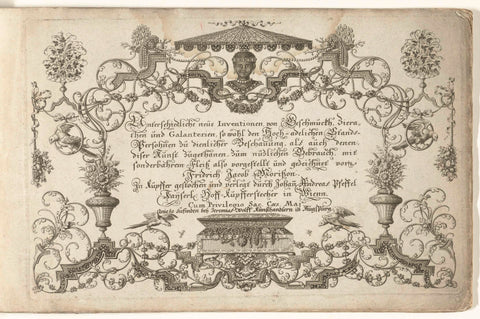 Unterschidliche neüe Inventionen von Geschmuckh, ziera-
then und Galanterien, so wohl den Hoch-adelichen Stands
Persohnen zu dienlicher Beschauung, als auch denen
diser Kunst zugethanen zum nüdlichen Gebrauch, mit
sonderbahrem Fleiß also vorgestellt und gedeichnet vom
Fridrich Jacob Morison.
Zu Küpffer gestochen und verlegt durch Johan Andreas Pfeffel
Kayserl: Hoff-Küpfferstecher in Wienn.
Cum Privilegio Sac. Cæs. Maj.
zufinden bey Jeremias Wolff Kunsthandlern in Augspurg.